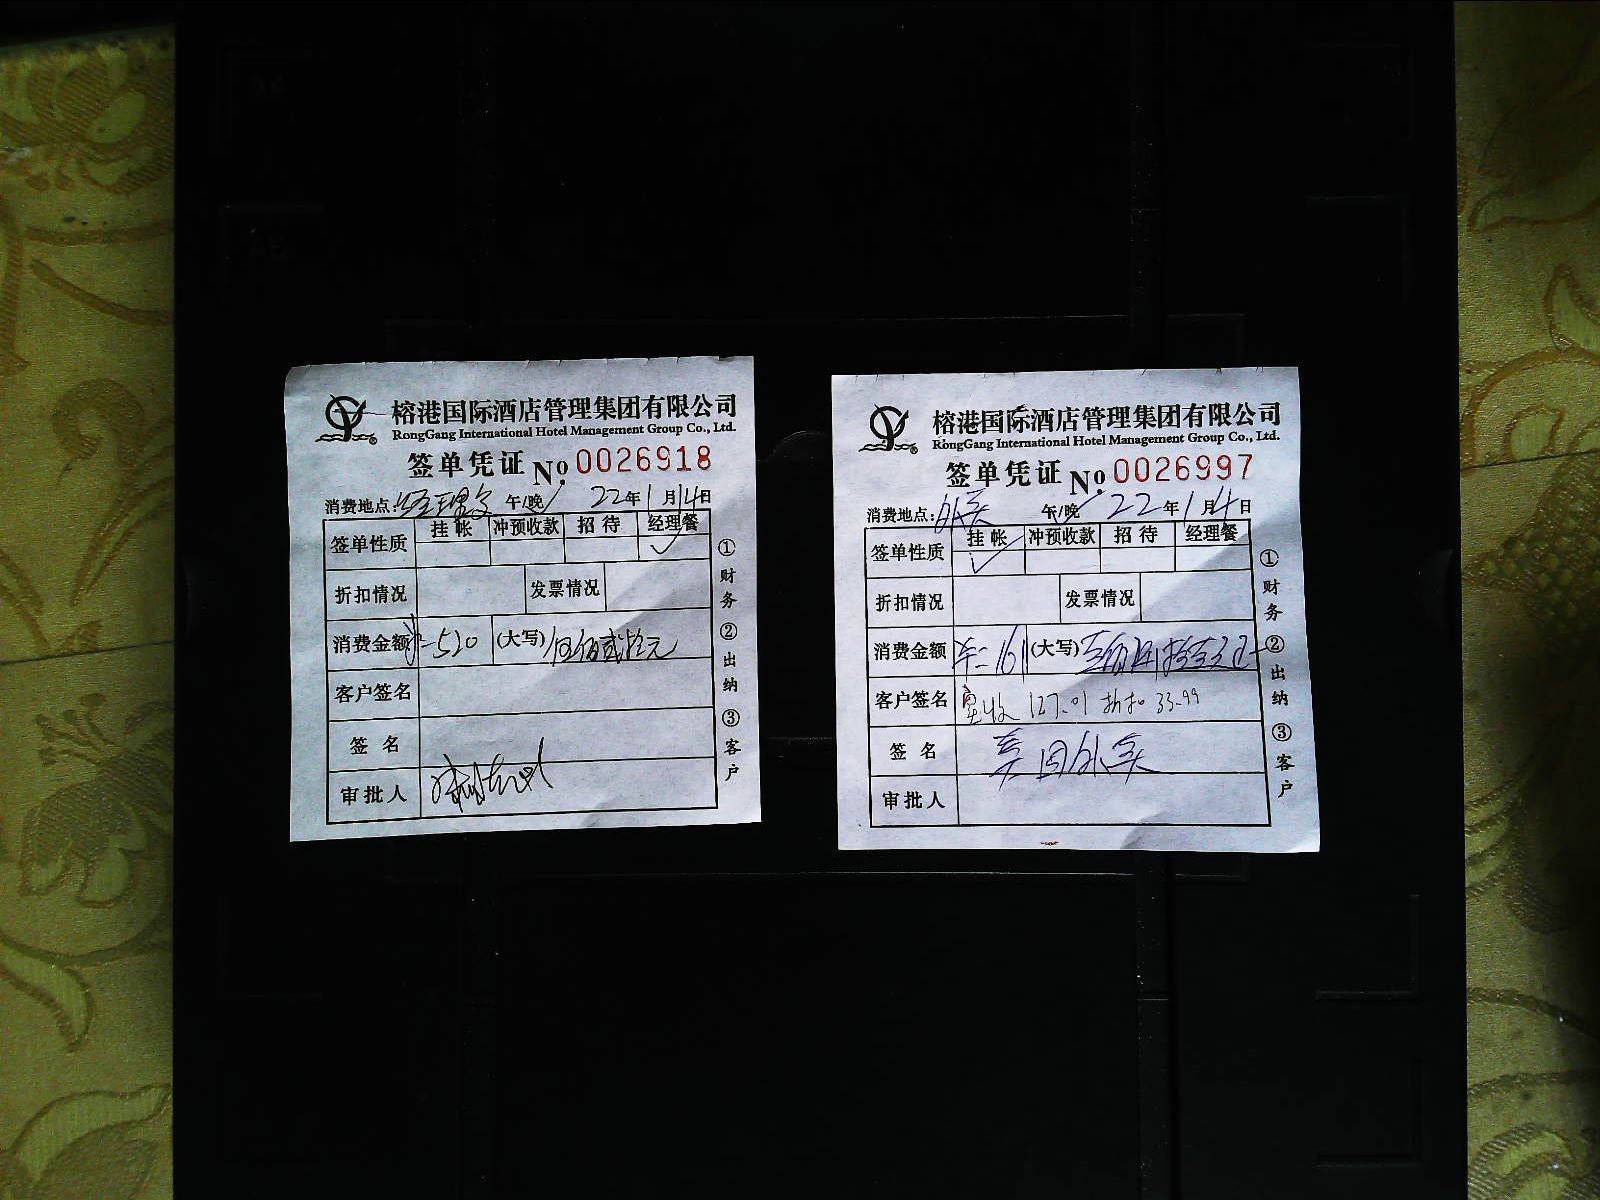 榕港国际酒店管理集团有限公司
RongGang International Hotel Management Group Co., Ltd.
签单凭证 No. 0026918
消费地点: 经理 午/晚 22年1月14日
签单性质 挂帐 冲预收款 招待 经理餐
✓
折扣情况 发票情况
消费金额 ¥-520 (大写) 伍佰贰拾元
客户签名
签名
审批人
①财务 ②出纳 ③客户
榕港国际酒店管理集团有限公司
RongGang International Hotel Management Group Co., Ltd.
签单凭证 No. 0026997
消费地点: 外卖 午/晚 22年1月4日
签单性质 挂帐 冲预收款 招待 经理餐
✓
折扣情况 发票情况
消费金额 161 (大写)
客户签名 实收 127.01 折扣 33.99
签名 美团外卖
审批人
①财务 ②出纳 ③客户